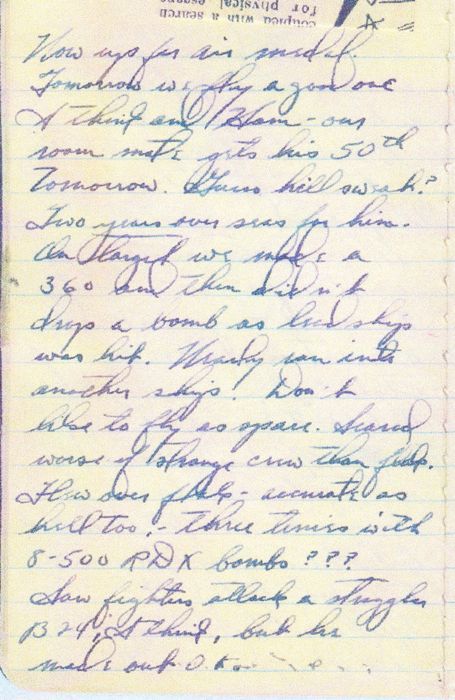 coupled with a search
for physical escape
Now up for air medal.
Tomorrow we fly a good one
I think and Ham - our
room mate gets his 50th
Tomorrow. Guess he'll sweat?
Two years over seas for him.
On target we made a
360 and then didn't
drop a bomb as lead ship
was hit. Nearly ran into
another ship. Don't
like to fly as spare. Scared
worse of strange crew than flak.
Flew over flak - accurate as
hell too! - three times with
8-500 RDX bombs???
Saw fighters attack a straggler
B24, I think, but he
made out O.K.